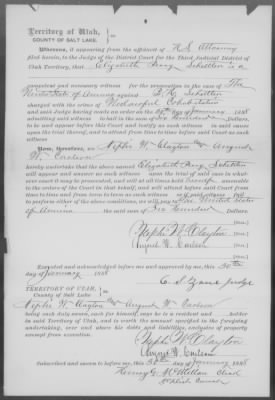 Territory of Utah,
COUNTY OF SALT LAKE.
Whereas, it appearing from the affidavit of U.S. Attorney
filed herein, to the Judge of the District Court for the Third Judicial District of
Utah Territory, that Elizabeth Schettler is a
competent and necessary witness for the prosecution in the case of The
United States of America against B. H. Schettler
charged with the crime of Unlawful Cohabitation
and said Judge having made an order on the day of January 1888
admitting said witness to bail in the sum of Six Hundred Dollars,
to be and appear before this Court and testify as such witness in said cause
upon the trial thereof, and attend from time to time before said Court as such
witness
Now, therefore, we Nephi W. Clayton and August
W. Carlson
hereby undertake that the above named Elizabeth Schettler
will appear and testify as such witness upon the trial of said case in what-
ever court it may be prosecuted, and will at all times hold herself amenable
to the orders of the Court in that behalf, and will attend before said Court from
time to time and from term to term as such witness, or if said witness fail
to perform either of the above conditions, we will pay to The United States
of America the sum of Six Hundred Dollars.
Nephi W. Clayton
August W. Carlson
Executed and acknowledged before me and approved by me, this 30th
day of January 1888
C. S. Zane Judge
TERRITORY OF UTAH,
County of Salt Lake
Nephi W. Clayton and August W. Carlson
being each duly sworn, each for himself, says he is a resident and holder
in said Territory of Utah, and is worth the amount specified in the foregoing
undertaking, over and above his debts and liabilities, exclusive of property
exempt from execution.
Nephi W. Clayton
August W. Carlson
Subscribed and sworn to before me, this 30th day of January 1888
Henry G. McMillan Clerk